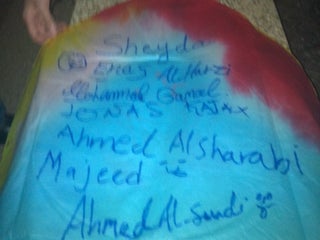 Sheyda
Enas
Mohammad Gamal
JONAS
Ahmed Alsharabi
Majeed
Ahmed Al-Saudi